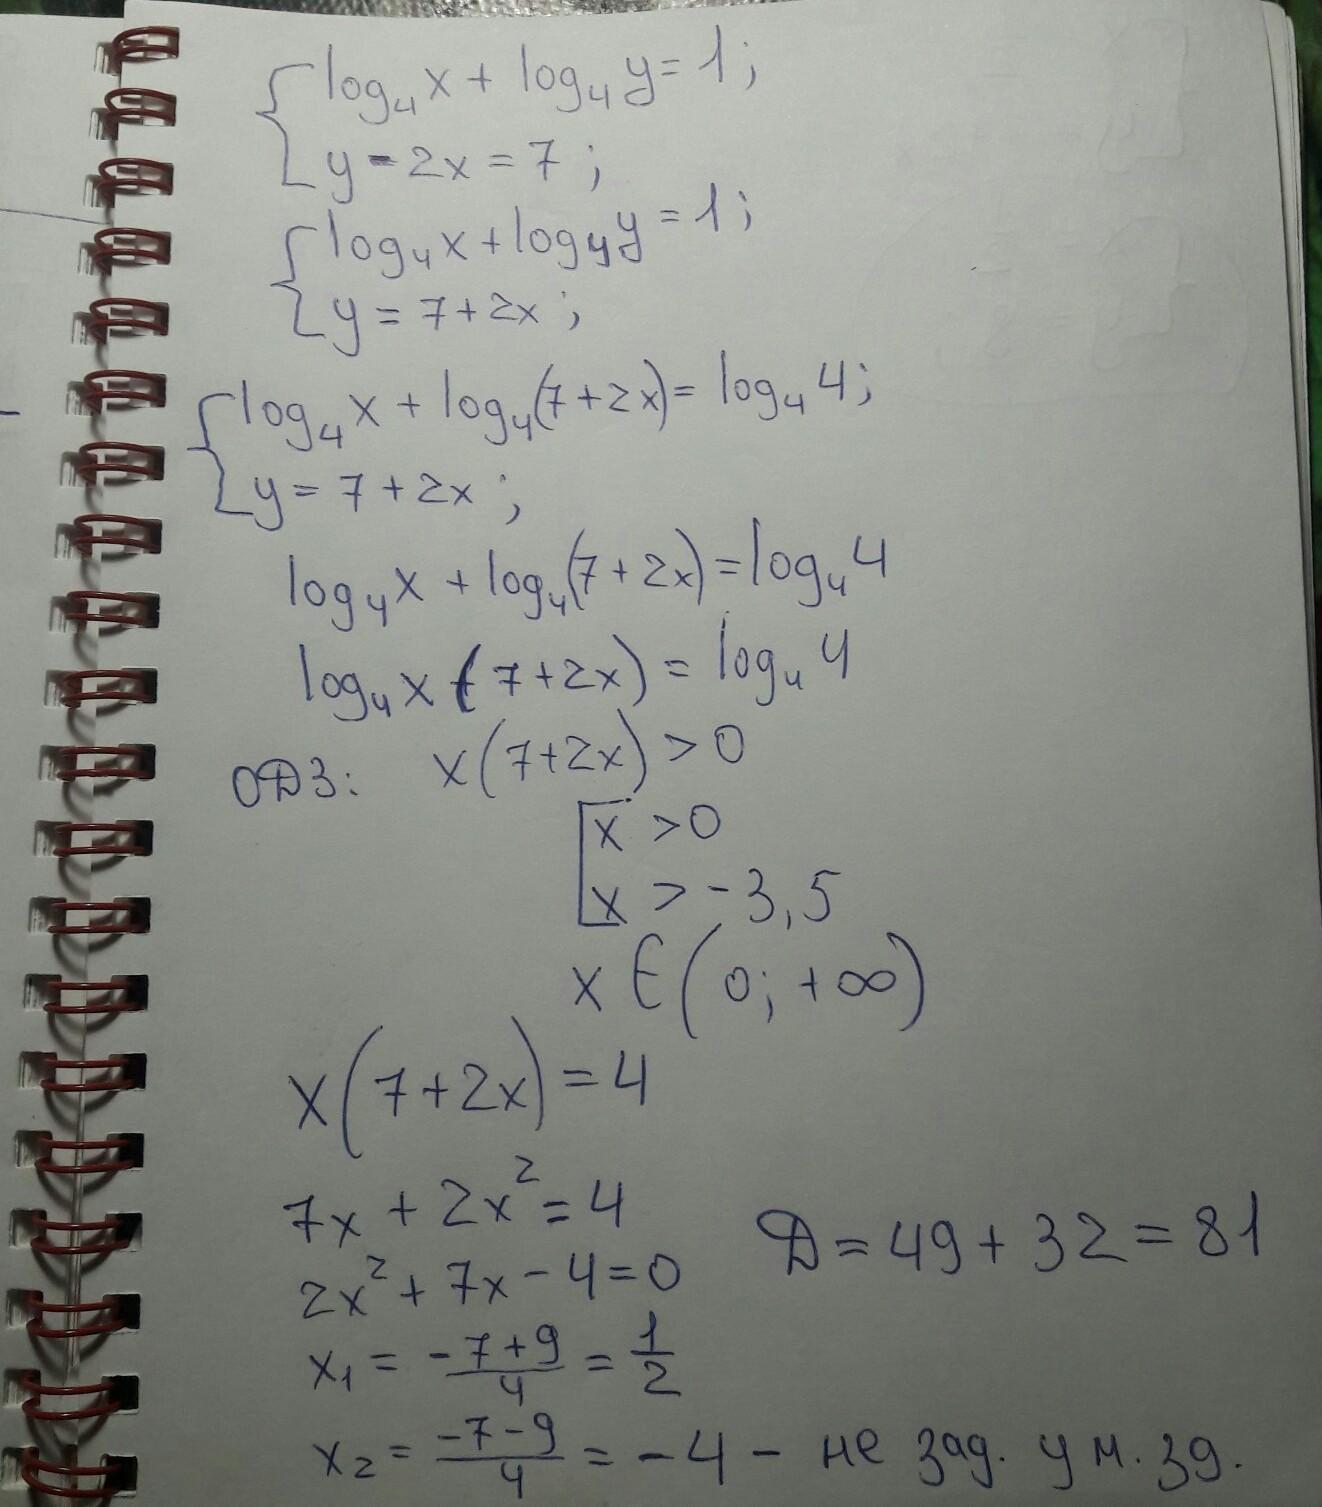 { log₄x + log₄y = 1;
y - 2x = 7;
{ log₄x + log₄y = 1;
y = 7 + 2x;
{ log₄x + log₄(7 + 2x) = log₄4;
y = 7 + 2x;
log₄x + log₄(7 + 2x) = log₄4
log₄x (7 + 2x) = log₄4
ОДЗ: x(7+2x) > 0
[ x > 0
x > -3,5
x ∈ (0; +∞)
x(7+2x) = 4
7x + 2x² = 4
2x² + 7x - 4 = 0 D = 49 + 32 = 81
x₁ = (-7+9)/4 = 1/2
x₂ = (-7-9)/4 = -4 - не зад. ум. зд.